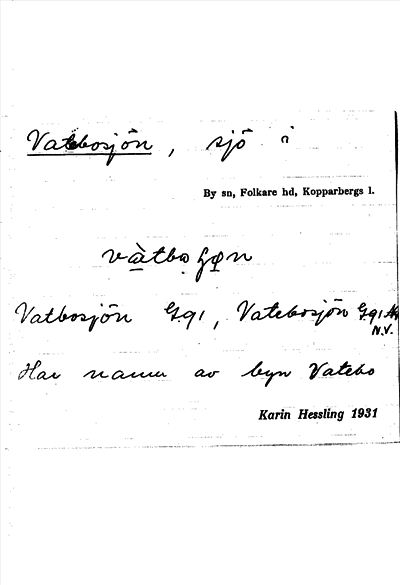 Vatebosjön, sjö i
By sn, Folkare hd, Kopparbergs l.
Vatbosjön G.91, Vatebosjön G.91
N.V.
Har namn av byn Vatebo
Karin Hessling 1931